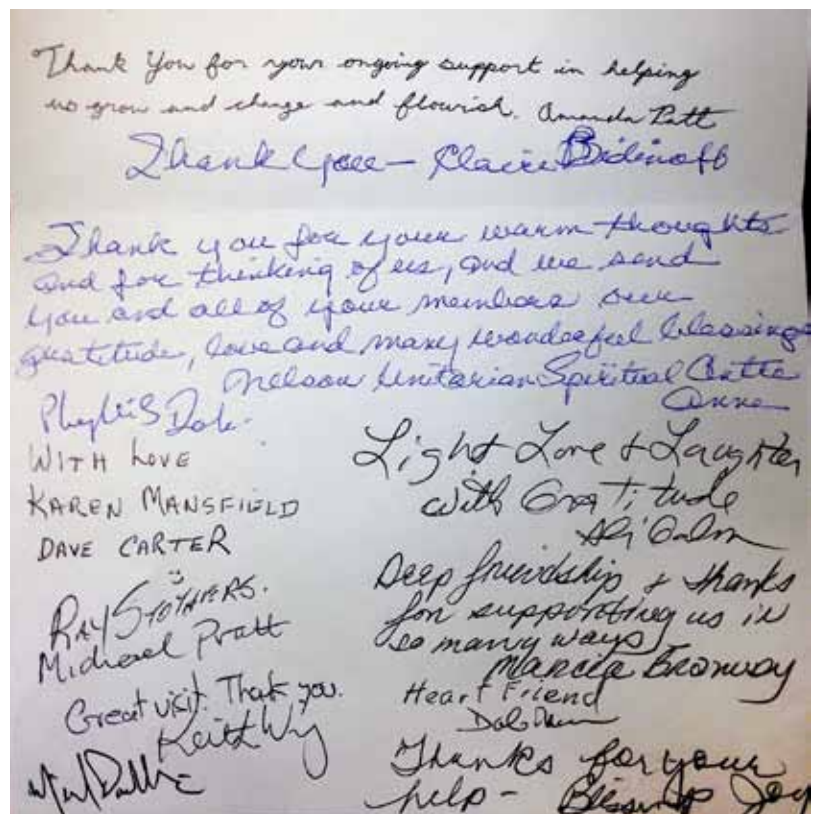 Thank You for your ongoing support in helping
us grow and change and flourish. Amanda Patt
Thank you - Claire Bidinoff
Thank you for your warm thoughts
and for thinking of us, and we send
you and all of your members our
gratitude, love and many wonderful blessings
Nelson Unitarian Spiritual Centre
Anne
Phyllis
WITH LOVE
KAREN MANSFIELD
DAVE CARTER
RAY STOTHERS.
Michael Pratt
Great visit. Thank you.
Keith
Light Love & Laughter
with Gratitude
Deep friendship & thanks
for supporting us in
so many ways
Marcia
Heart Friend
Thanks for your
help - Blessings Joy